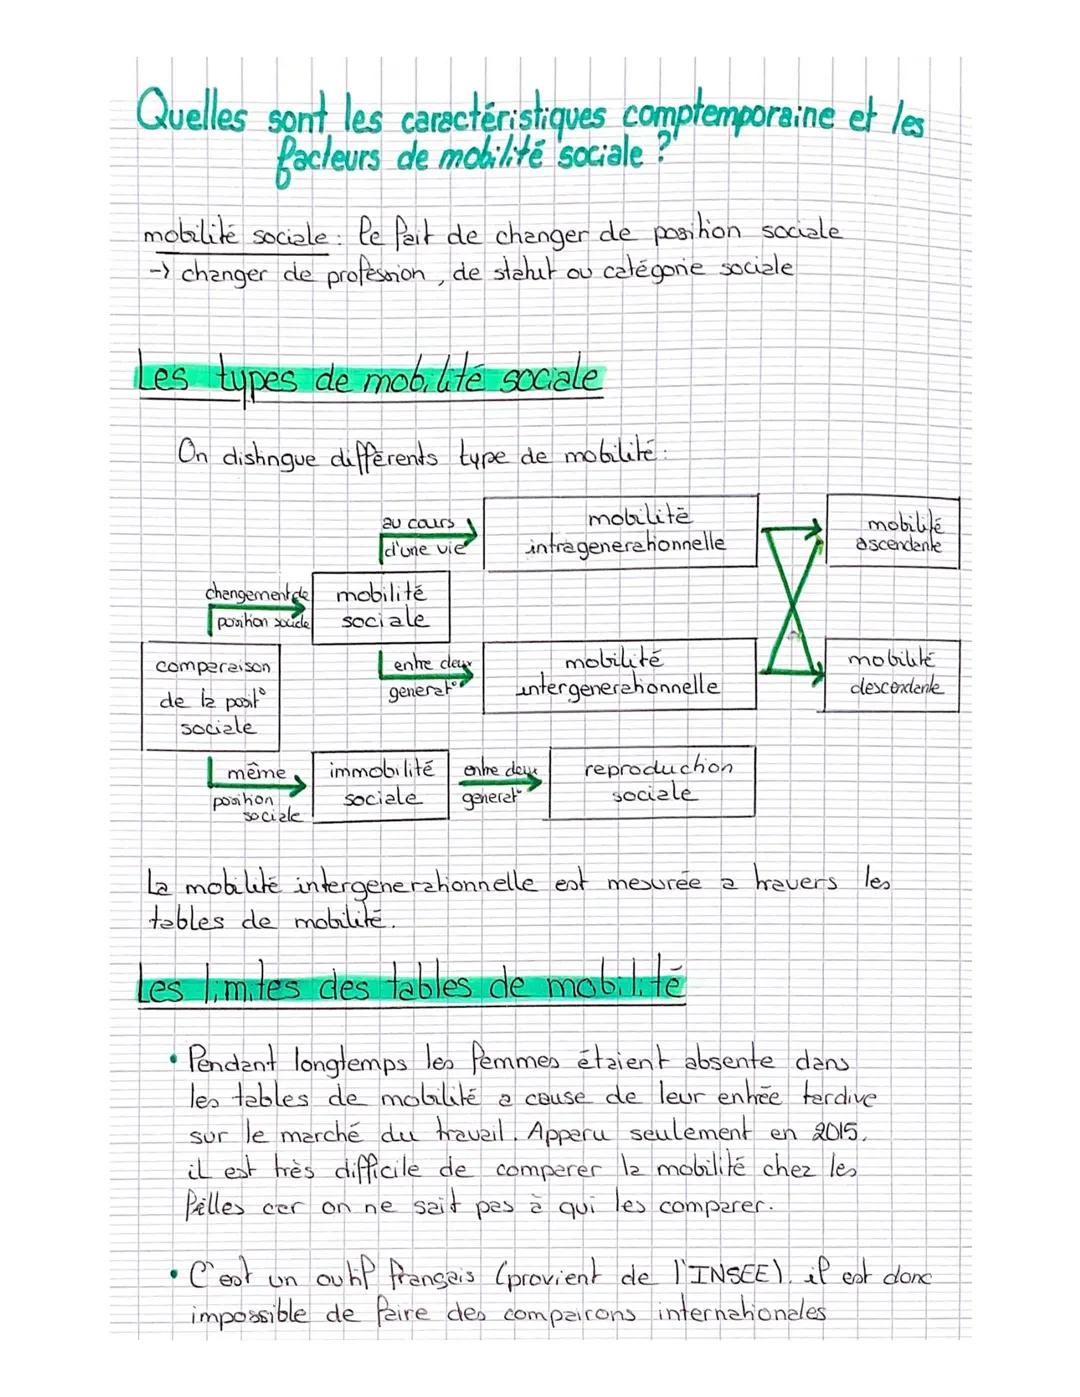 Quelles sont les caractéristiques comptemporaine et les
facteurs de mobilité sociale ?
mobilité sociale : le fait de changer de position sociale
-> changer de profession, de statut ou catégorie sociale
Les types de mobilité sociale
On distingue différents type de mobilité :
au cours
d'une vie
mobilité
intragenerationnelle
mobilité
ascendante
changement de
position sociale
mobilité
sociale
comparaison
de la posit°
sociale
entre deux
generat°
mobilité
intergenerationnelle
mobilité
descendante
même
position
sociale
immobilité
sociale
entre deux
generat°
reproduction
sociale
La mobilité intergenerationnelle est mesurée a travers les
tables de mobilité.
Les limites des tables de mobilité
• Pendant longtemps les femmes étaient absente dans
les tables de mobilité a cause de leur entrée tardive
sur le marché du travail. Apparu seulement en 2015.
il est très difficile de comparer la mobilité chez les
filles car on ne sait pas à qui les comparer.
• C'est un outil français (provient de l'INSEE). il est donc
impossible de faire des compairons internationales